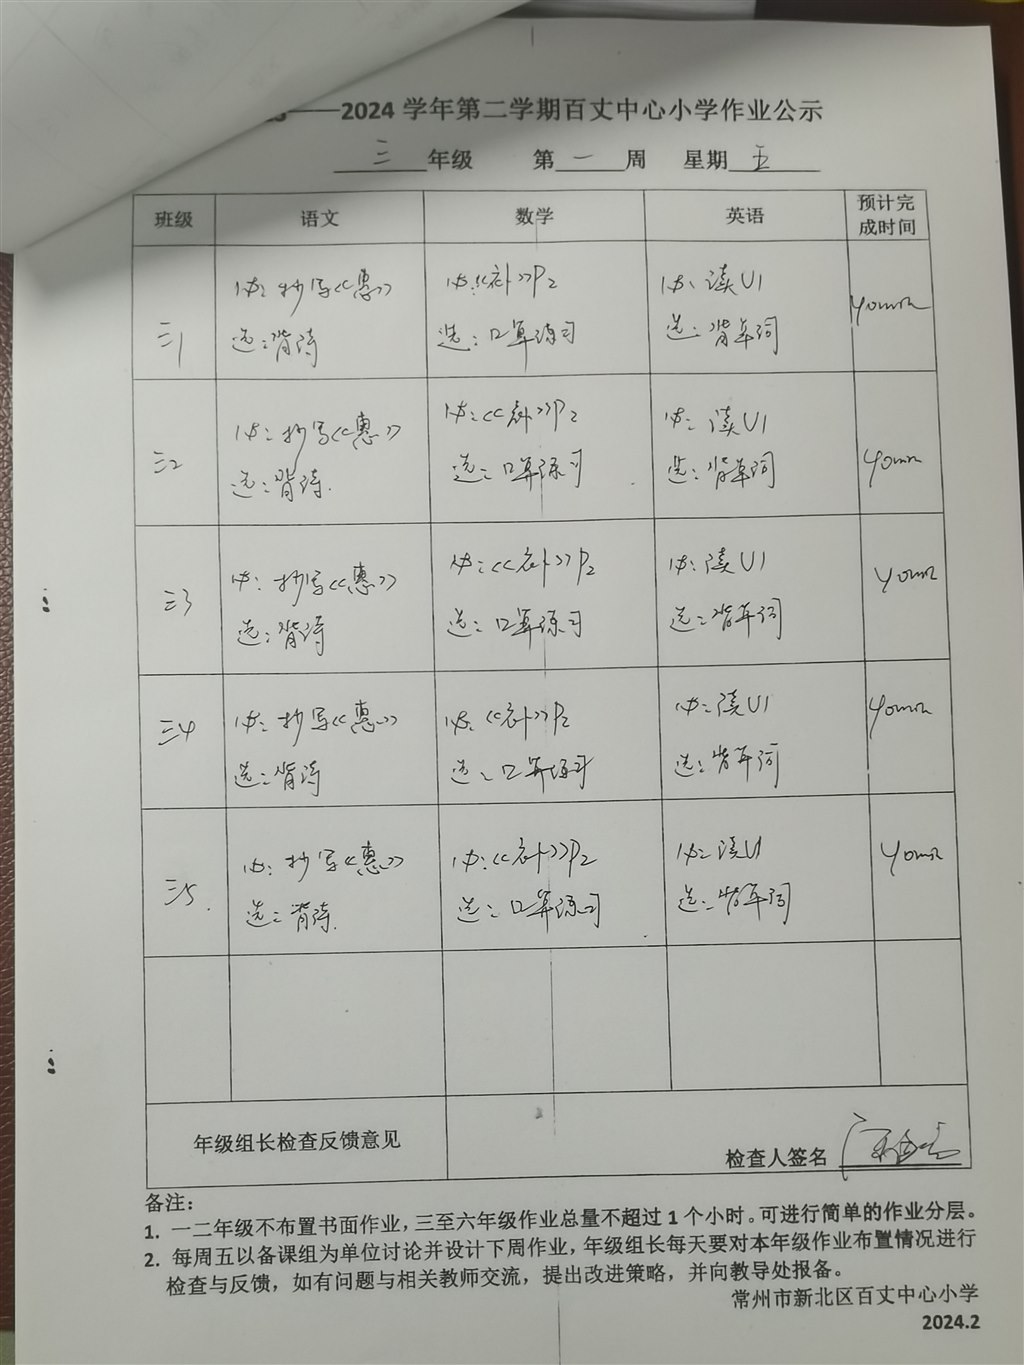 ——2024 学年第二学期百丈中心小学作业公示
三 年级 第 一 周 星期 五
班级 语文 数学 英语 预计完成时间
三1 必：抄写《惠》 必：《补》P2 必：读U1 40min
选：背诗 选：口算练习 选：背单词
三2 必：抄写《惠》 必：《补》P2 必：读U1 40min
选：背诗. 选：口算练习 选：背单词
三3 必：抄写《惠》 必：《补》P2 必：读U1 40min
选：背诗 选：口算练习 选：背单词
三4 必：抄写《惠》 必：《补》P2 必：读U1 40min
选：背诗 选：口算练习 选：背单词
三5. 必：抄写《惠》 必：《补》P2 必：读U1 40min
选：背诗. 选：口算练习 选：背单词
年级组长检查反馈意见
检查人签名
备注：
1. 一二年级不布置书面作业，三至六年级作业总量不超过 1 个小时。可进行简单的作业分层。
2. 每周五以备课组为单位讨论并设计下周作业，年级组长每天要对本年级作业布置情况进行
检查与反馈，如有问题与相关教师交流，提出改进策略，并向教导处报备。
常州市新北区百丈中心小学
2024.2